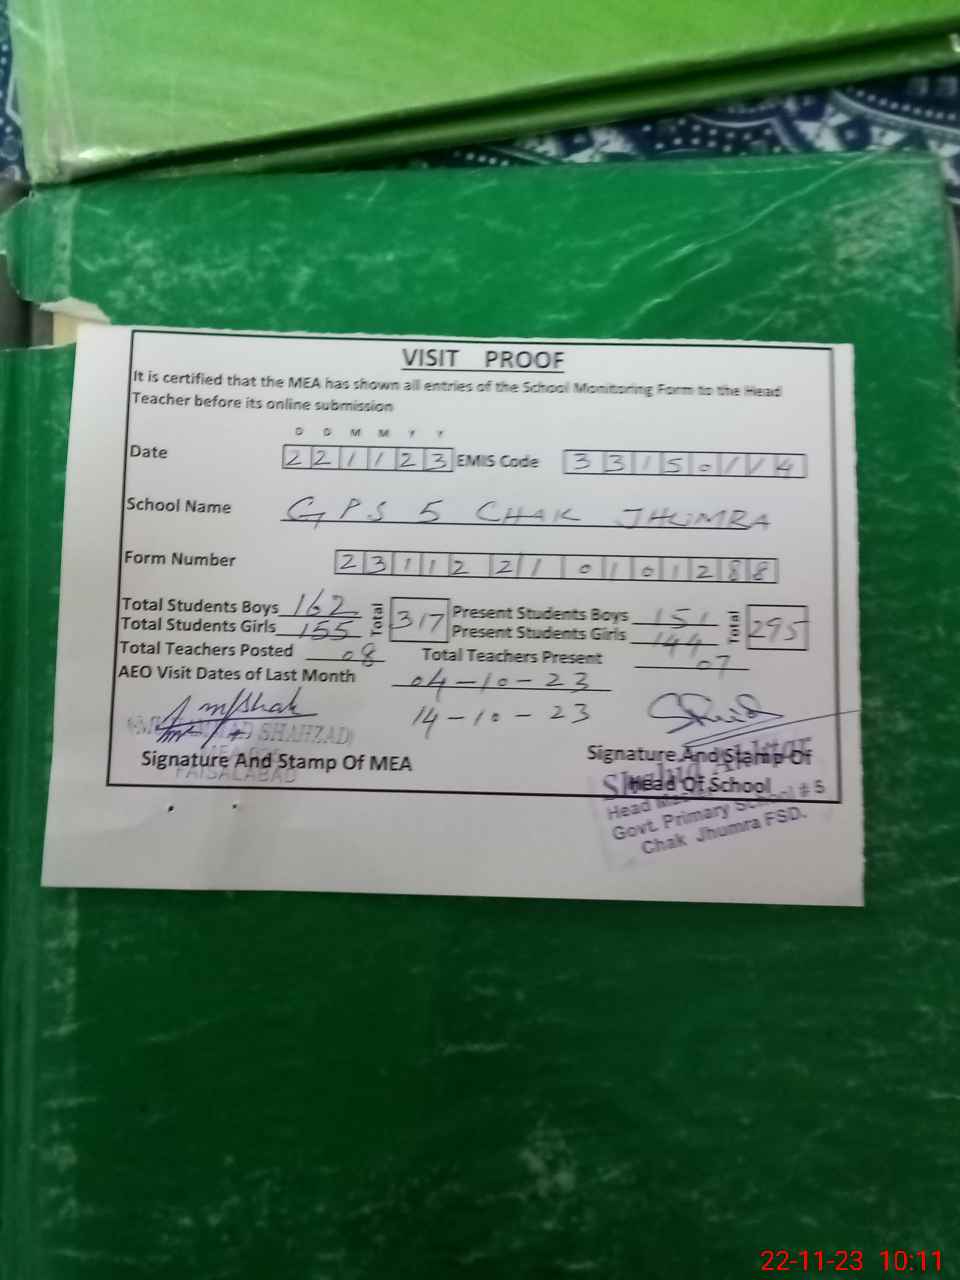 VISIT PROOF
It is certified that the MEA has shown all entries of the School Monitoring Form to the Head
Teacher before its online submission
D D M M Y Y
Date 2 2 1 1 2 3 EMIS Code 3 3 1 5 0 1 1 4
School Name GPS 5 CHAK JHUMRA
Form Number 2 3 1 1 2 2 1 0 1 0 1 2 8 8
Total Students Boys 162 Total 317 Present Students Boys 151 Total 295
Total Students Girls 155 Present Students Girls 144
Total Teachers Posted 08 Total Teachers Present 07
AEO Visit Dates of Last Month 04-10-23
14-10-23
SHAHZAD)
Signature And Stamp Of MEA Signature And Stamp Of
FAISALABAD Head Of School
Head
Govt. Primary School # 5
Chak Jhumra FSD.
22-11-23 10:11